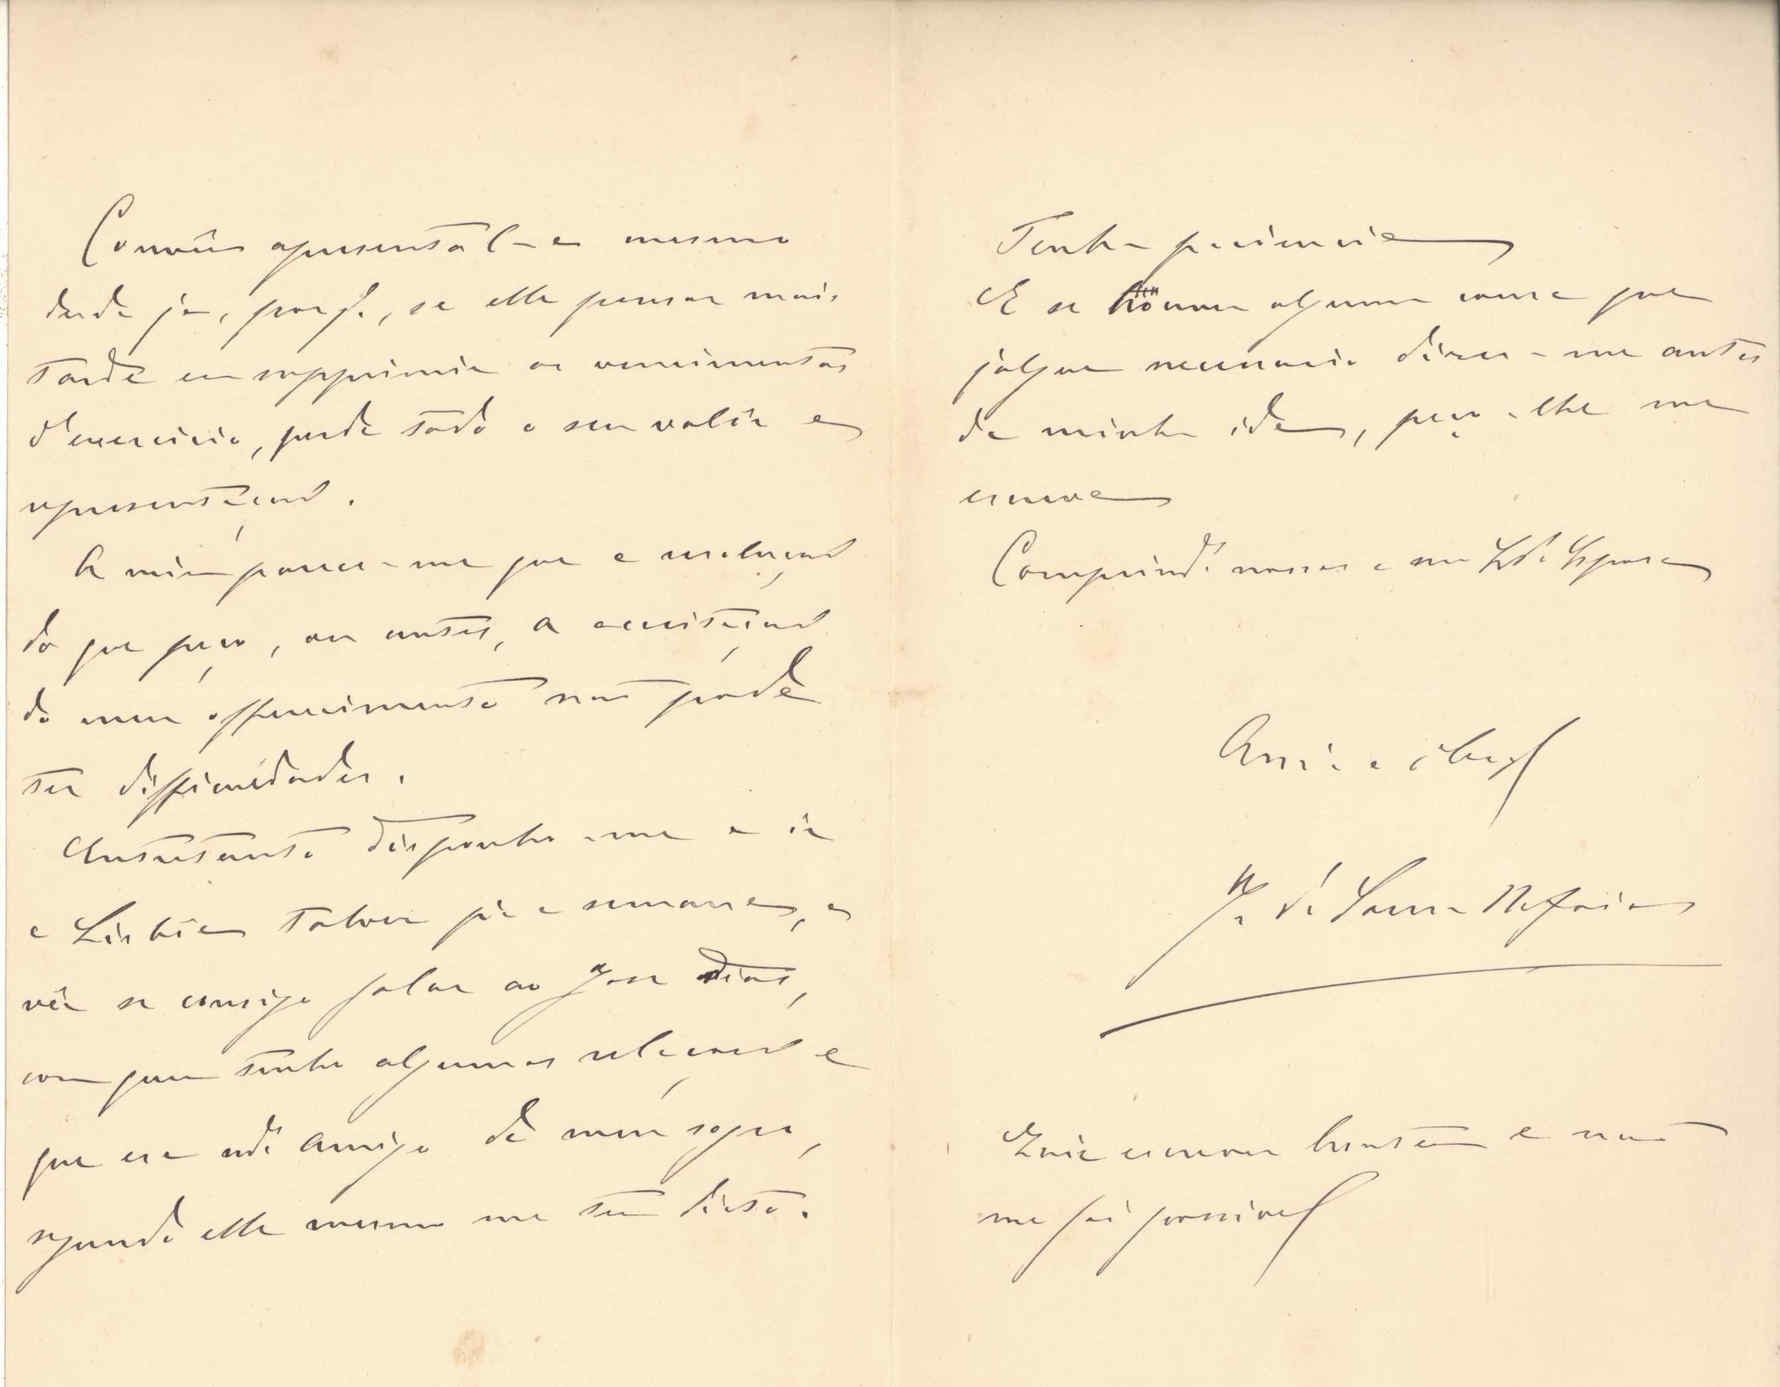 Convem apresental-a mesmo
desde já, porq., se elle pensar mais
tarde em supprimir os vencimentos
d'exercicio, perde todo o seu valôr a
representação.
A mim parece-me que a resolução
do que peço, ou antes, a acceitação
do meu offerecimento não póde
ter difficuldades.
Entretanto disponho-me a ir
a Lisbôa talvez p'ra semana, a
vêr se consigo falar ao José Dias,
com quem tenho algumas relações e
que era mto amigo de meu sogro,
segundo elle mesmo me tem dicto.
Tenha paciencia
E se houver alguma cousa que
julgue necessario dizer-me antes
da minha ida, peço-lhe me
escreva
Comprimtos nossos a sua Exma Esposa
Amo e obrgo
J. de Sousa
Quiz escrever hontem e não
me foi possivel